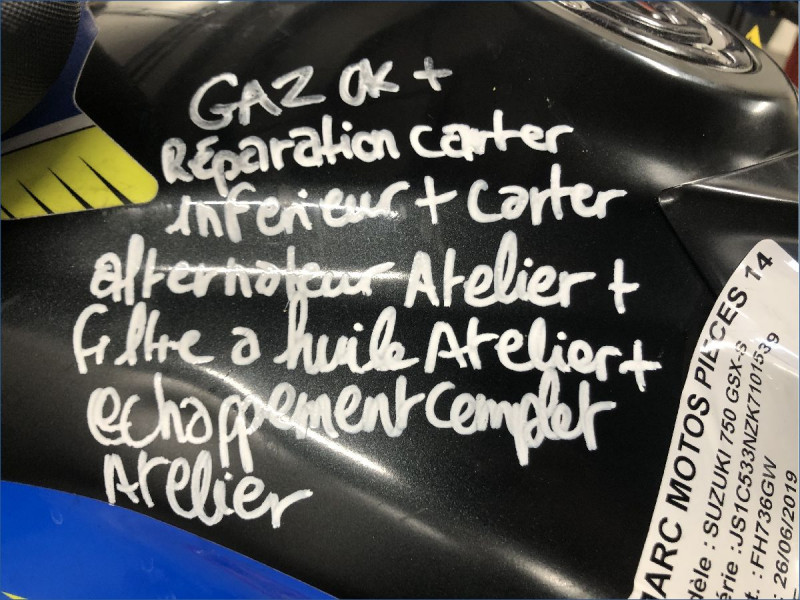 GAZ OK +
Réparation carter
inférieur + Carter
alternateur Atelier +
Filtre a huile Atelier +
echappement Complet
Atelier
ARC MOTOS PIECES 14
dèle : SUZUKI 750 GSX-S
érie : JS1C533NZK7101539
t. : FH736GW
: 26/06/2019